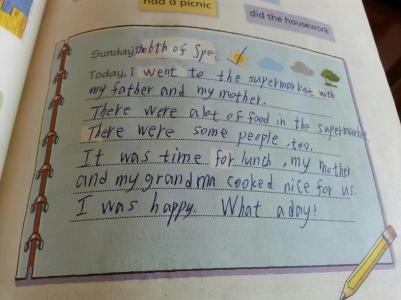 had a picnic
did the housework
Sunday, the 6th of Spe.
Today, I went to the supermarket with
my father and my mother.
There were alot of food in the supermarket.
There were some people, too.
It was time for lunch, my mother
and my grandma cooked nice for us.
I was happy. What a day!